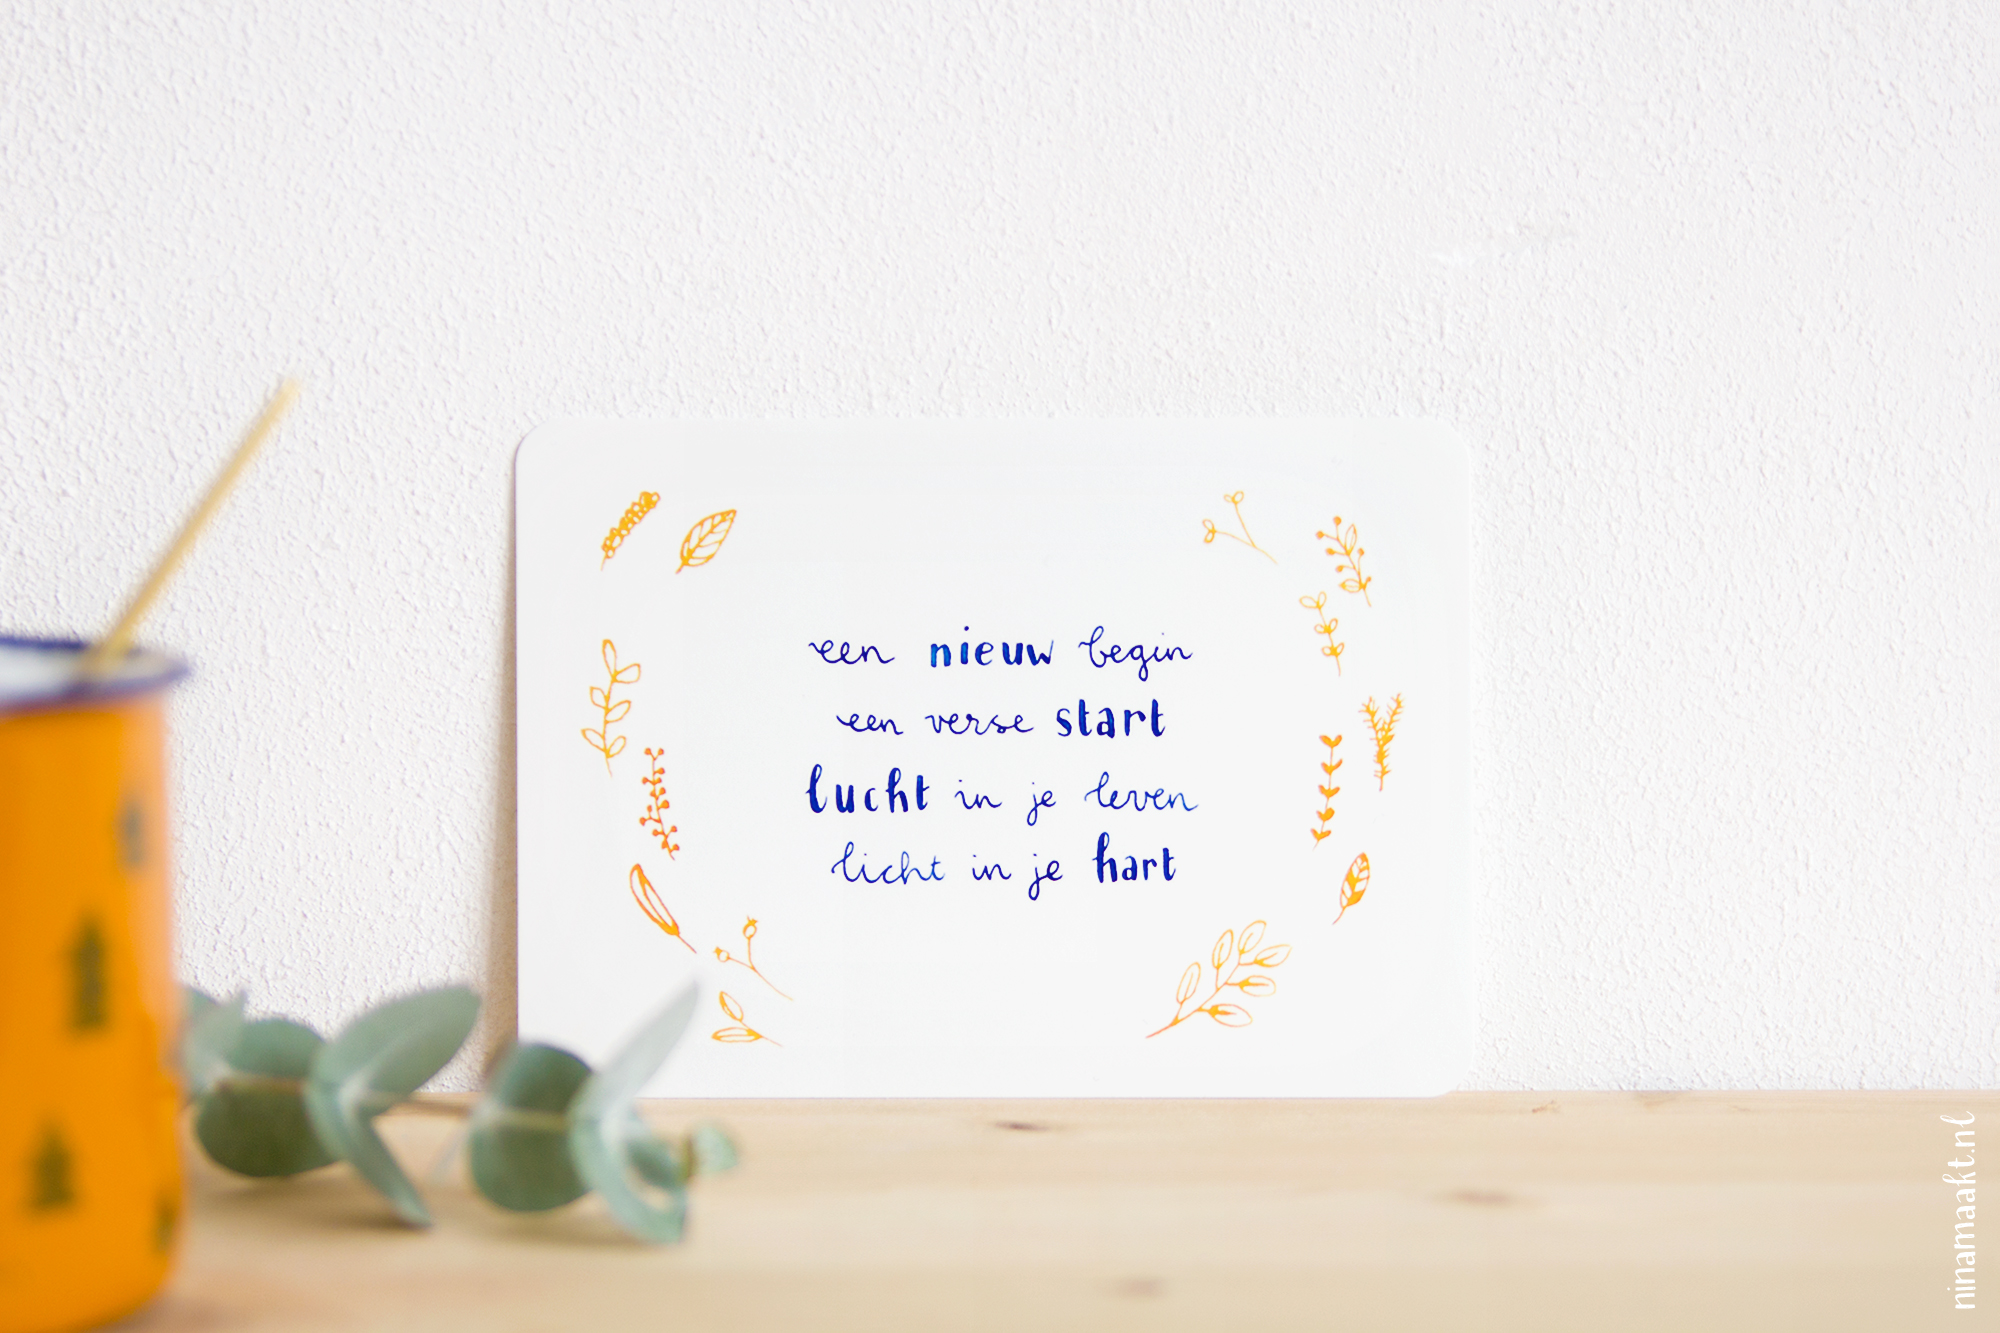 een nieuw begin
een verse start
lucht in je leven
licht in je hart
ninamaakt.nl